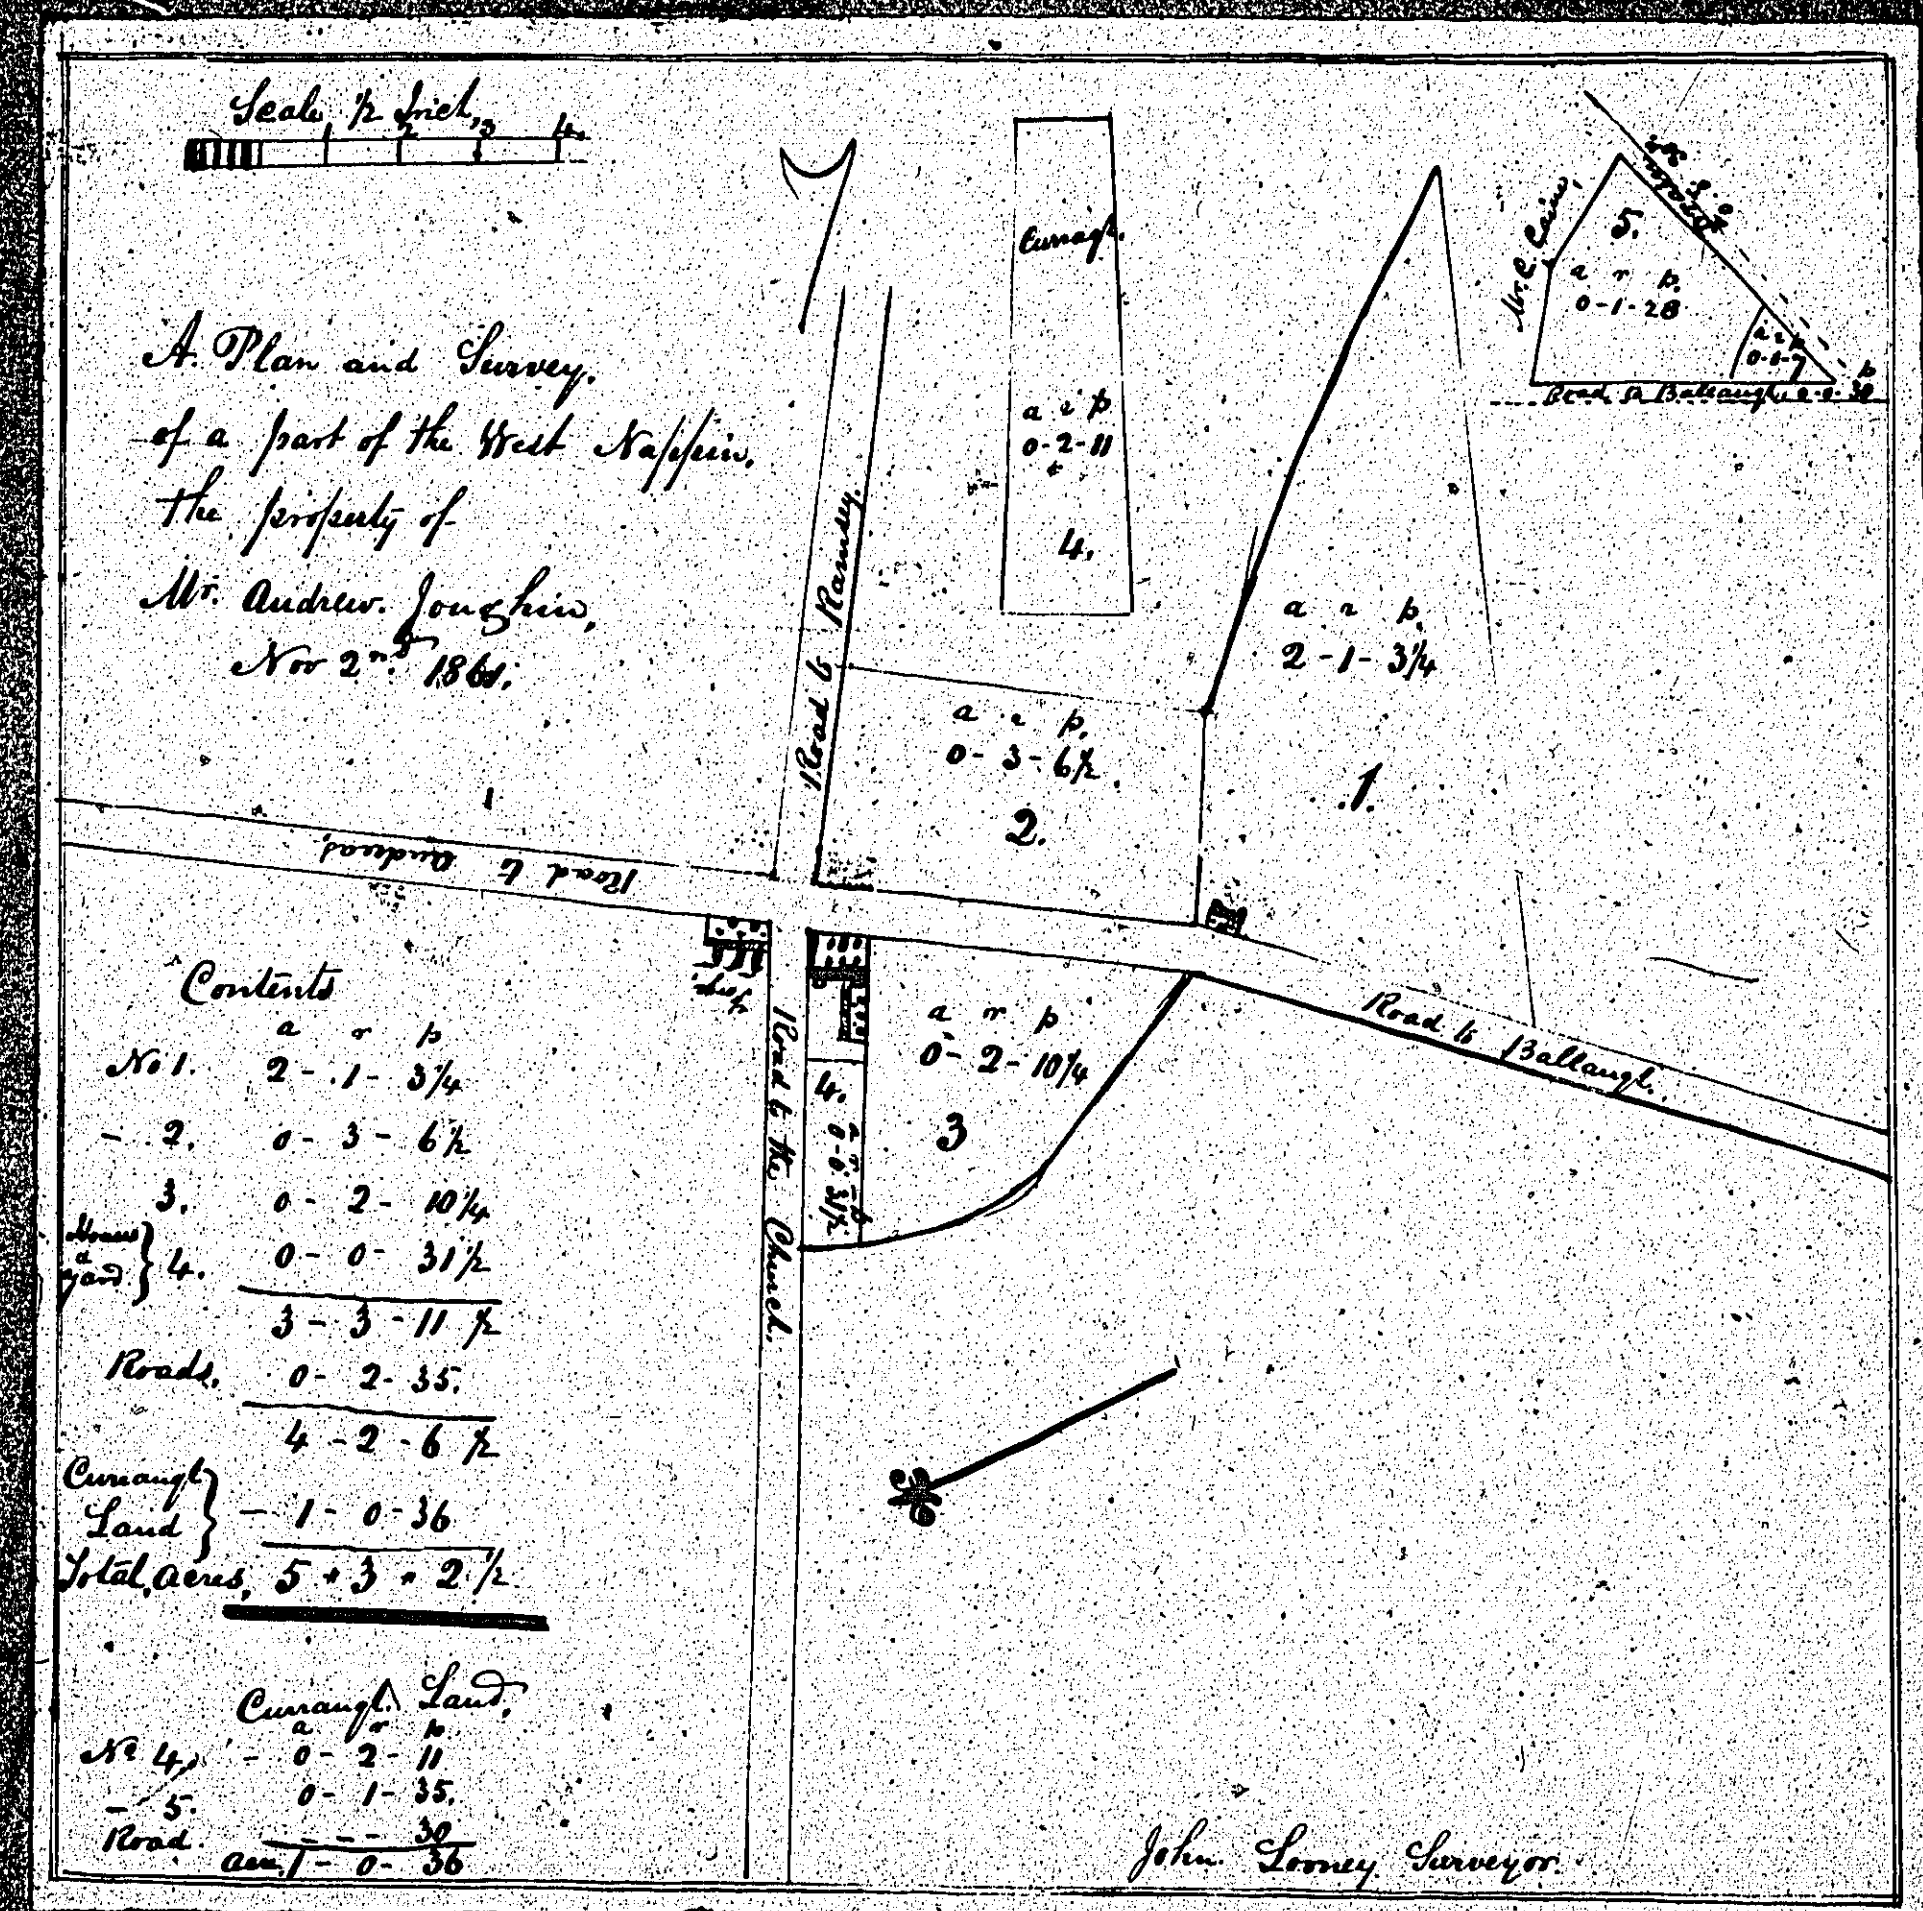 Scale 1/2 Inch,
1 2 3 4.
A. Plan and Survey.
of a part of the West Nappin.
the property of
Mr. Andrew. Joughin,
Nov 2nd 1861.
Curragh.
a r p
0-2-11
4.
Mr. C. Cain,
5.
a r p.
0-1-28
a r p
0-0-7
Road to Ballaugh, 0.0.30
p
a r p.
2-1-3 1/4
1.
Road to Ramsey.
a r p.
0-3-6 1/2
2.
Road to Andreas,
Forge.
Road to Ballaugh.
a r p
0-2-10 1/4
3
4.
a r p
0-0-31 1/2
Road to the Church.
Contents
a r p
No 1. 2-1-3 1/4
- 2. 0-3-6 1/2
3. 0-2-10 1/4
Houses & yard } 4. 0-0-31 1/2
3-3-11 1/2
Roads. 0-2-35.
4-2-6 1/2
Curraugh Land } - 1-0-36
Total, acres, 5 + 3 + 2 1/2
Curraugh Land,
a r p.
No 4, - 0-2-11
- 5. 0-1-35.
Road. - - - 30
Acre, 1-0-36
John Looney Surveyor.